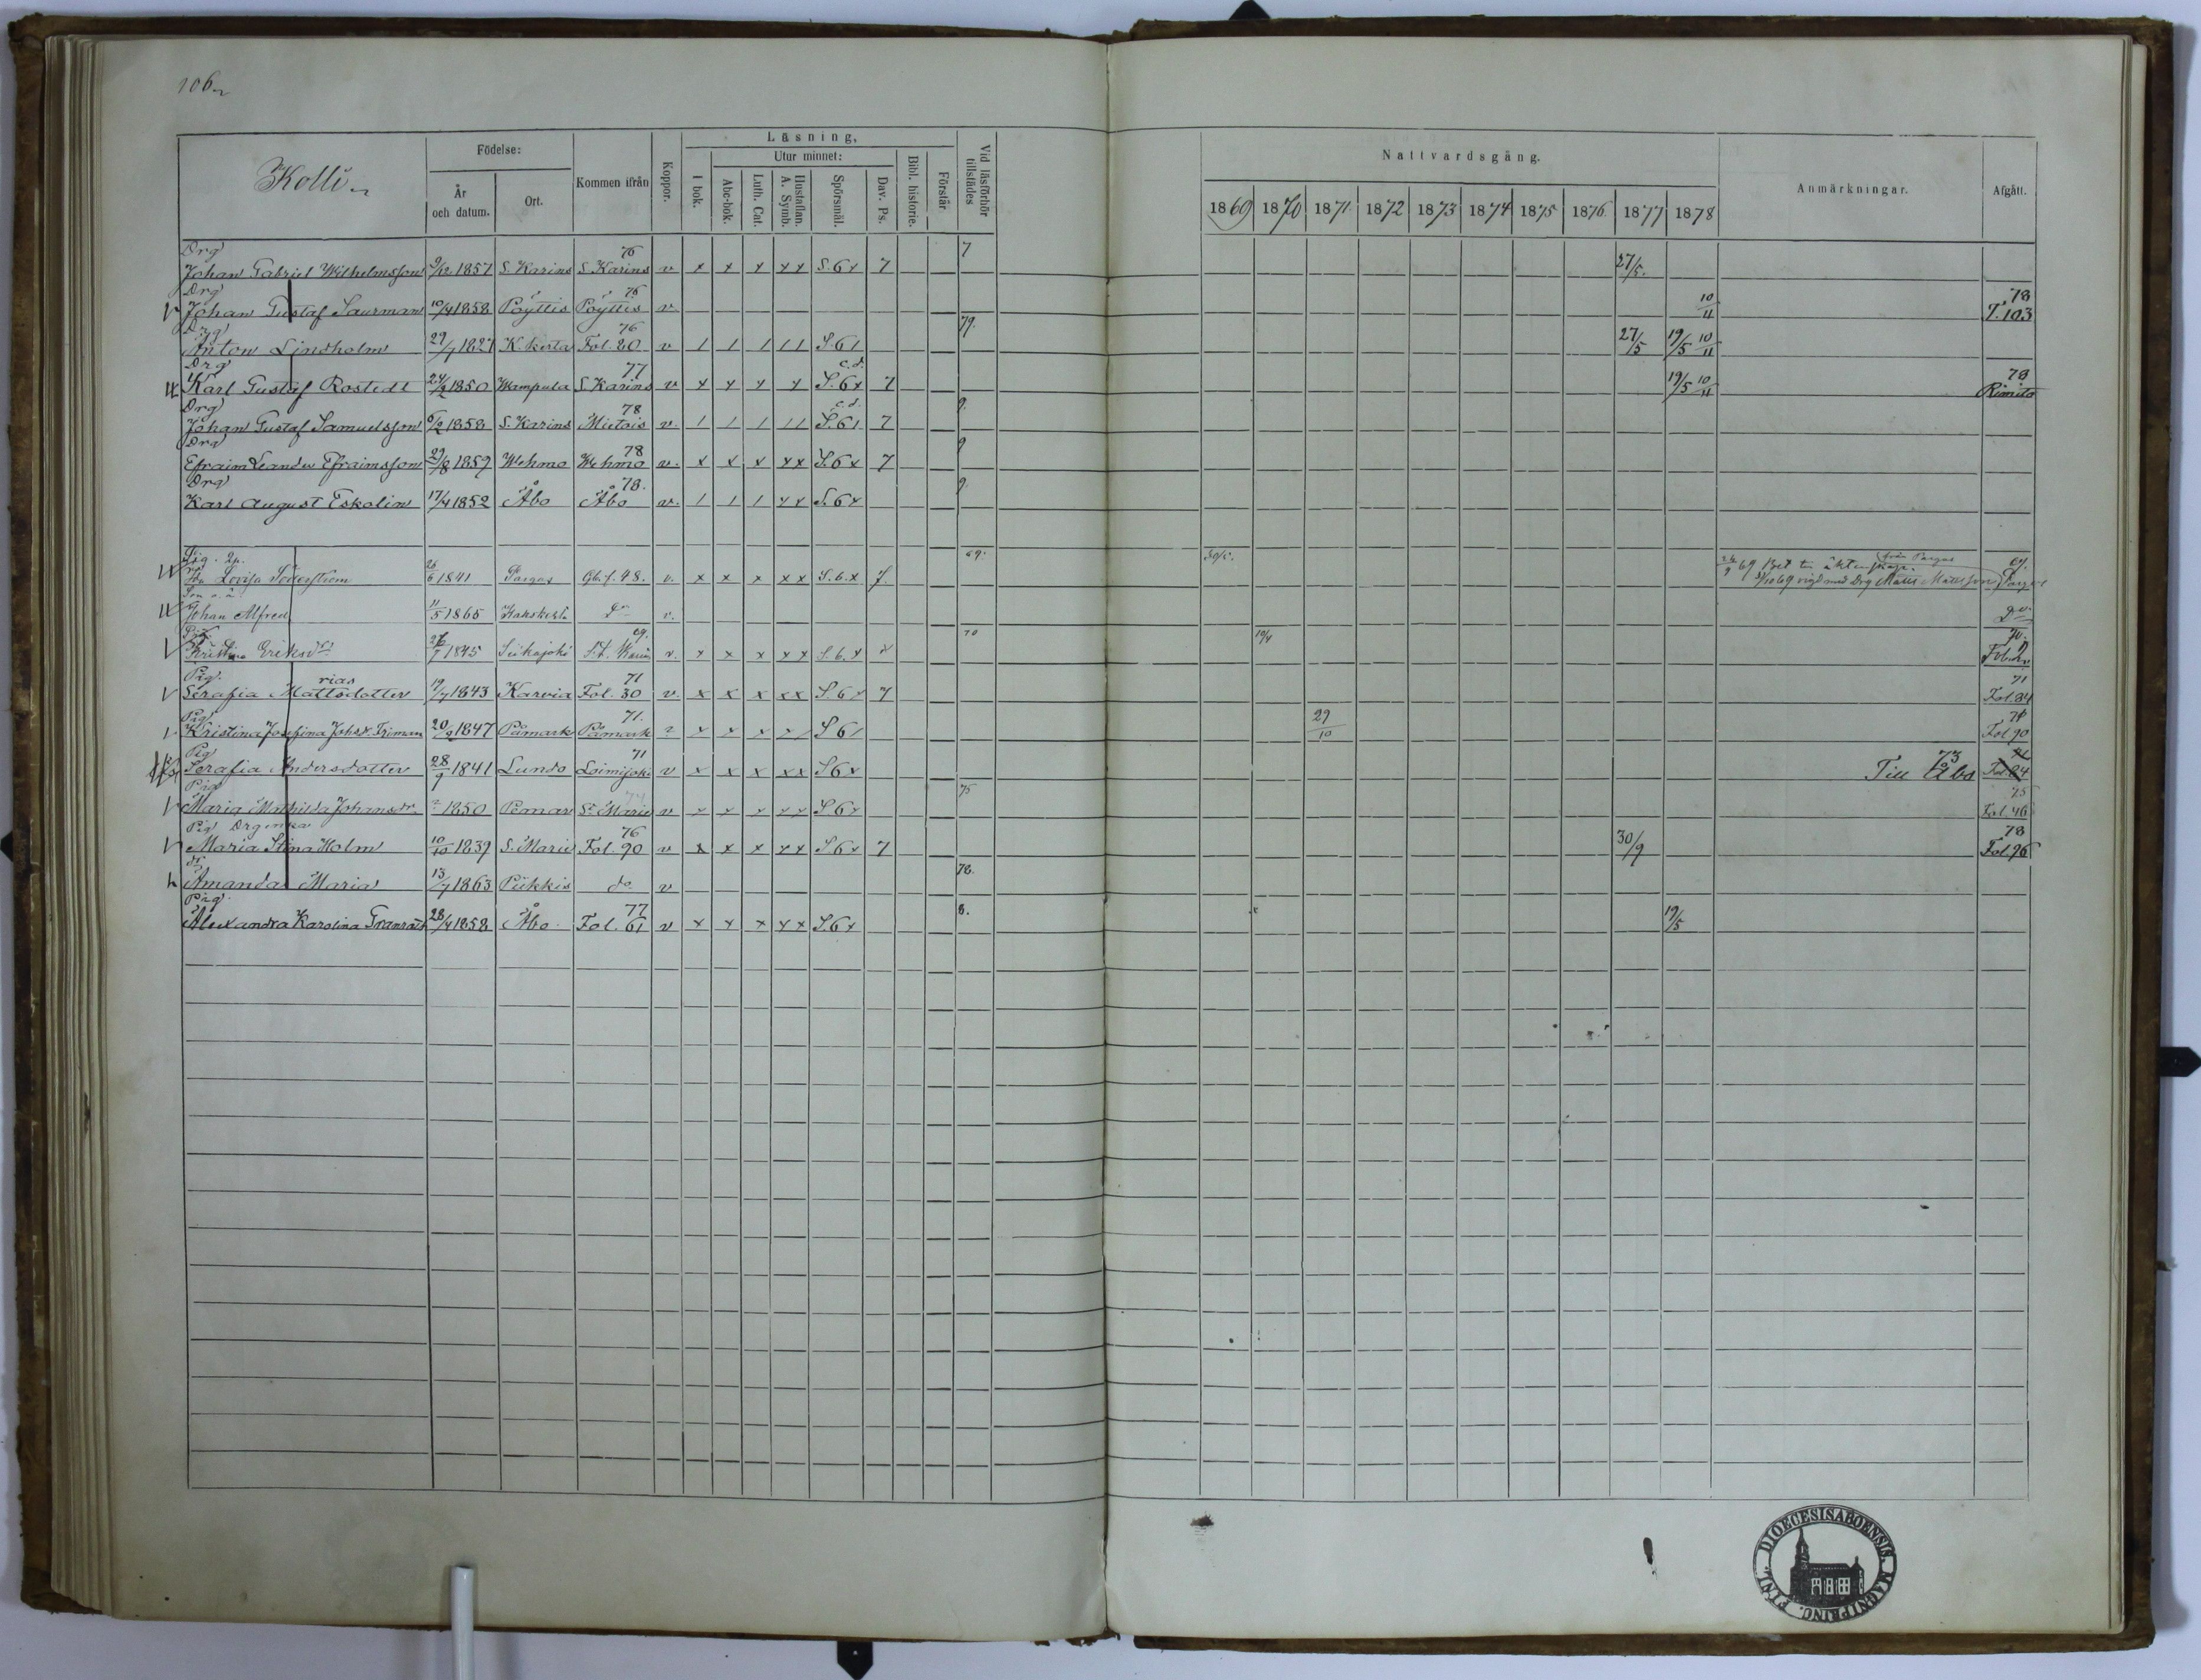 106.
Kolli.
Födelse:
År och datum.
Ort.
Kommen ifrån
Koppor.
Läsning,
I bok.
Utur minnet:
Abc-bok.
Luth. Cat.
Hustaflan. A. Symb.
Spörsmål.
Dav. Ps.
Bibl. historie.
Förstår.
Vid läsförhör tillstädes
Nattvardsgång.
1869 1870 1871 1872 1873 1874 1875 1876 1877 1878
Anmärkningar.
Afgått.
Drg 76 7
Johan Gabriel Wilhelmsson 9/12 1857 S. Karins S. Karins v x x x x x S. 6 x 7 27/5.
Drg 76 78
Johan Gustaf Saurman 10/4 1858 Pöyttis Pöyttis v. 10/11 T. 103
Drg 76 79.
Anton Lindholm 29/7 1827 K. kerta Fol. 20 v / / / / / S. 6 / 27/5 19/5 10/11
Drg 77 c. d. 78
Karl Gustaf Rostedt 24/2 1850 Wampula S. Karins v x x x x S. 6 x 7 19/5 10/11 Rimito
Drg 78 c. d. 9.
Johan Gustaf Samuelsson 6/2 1858 S. Karins Mietois v. / / / / / S. 6 / 7
Drg 78 9
Efraim Leander Efraimsson 29/8 1859 Wehmo Wehmo v. x x x x x S. 6 x 7
Drg 78. 9.
Karl August Eskolin 17/4 1852 Åbo Åbo v. / / / x x S. 6 x
Pig. 69. 30/5. 26/9 69 Bet till äktenskap. från Pargas 69.
Lovisa Söderström 26/6 1841 Pargas Gb. f. 48. v. x x x x x S. 6. x 7. 69 vigd med Drg Matts Mattsson Pargas
Son o. ä.
Johan Alfred 11/5 1865 Karskerta do v. do
Pig. 69. 70 10/4 70.
Kristina Eriksdr 26/7 1845 Siikajoki S:t Marie v. x x x x x S. 6. x x
Pig. rias 71 71
Serafia Mattsdotter 19/7 1843 Karvia Fol. 30 v. x x x x x S. 6 x 7 Fol. 84
Pig 71. 29/10 71
Kristina Josefina Johsdr. Friman 20/9 1847 Påmark Påmark ? x x x x / S 6 / Fol 90
Pig 71 73
Serafia Andersdotter 28/9 1841 Lundo Loimijoki v x x x x x S 6 x Till Åbo Fol. 84
Pig 75 75
Maria Mathilda Johansdr. 1850 Pemar S:t Marie v x x x x x S 6 x Fol. 46
Pig Drgenka 76 78
Maria Stina Holm 10/10 1839 S. Marie Fol. 90 v x x x x x S 6 x 7 30/9 Fol. 96
dr 78.
Amanda Maria 13/7 1863 Piikkis do v
Pig. 77 8.
Alexandra Karolina Granroth 28/4 1858 Åbo Fol. 61 v x x x x x S. 6 x 19/5
DIOECESIS ABOENSIS. MAGNI PRINC. FINL.